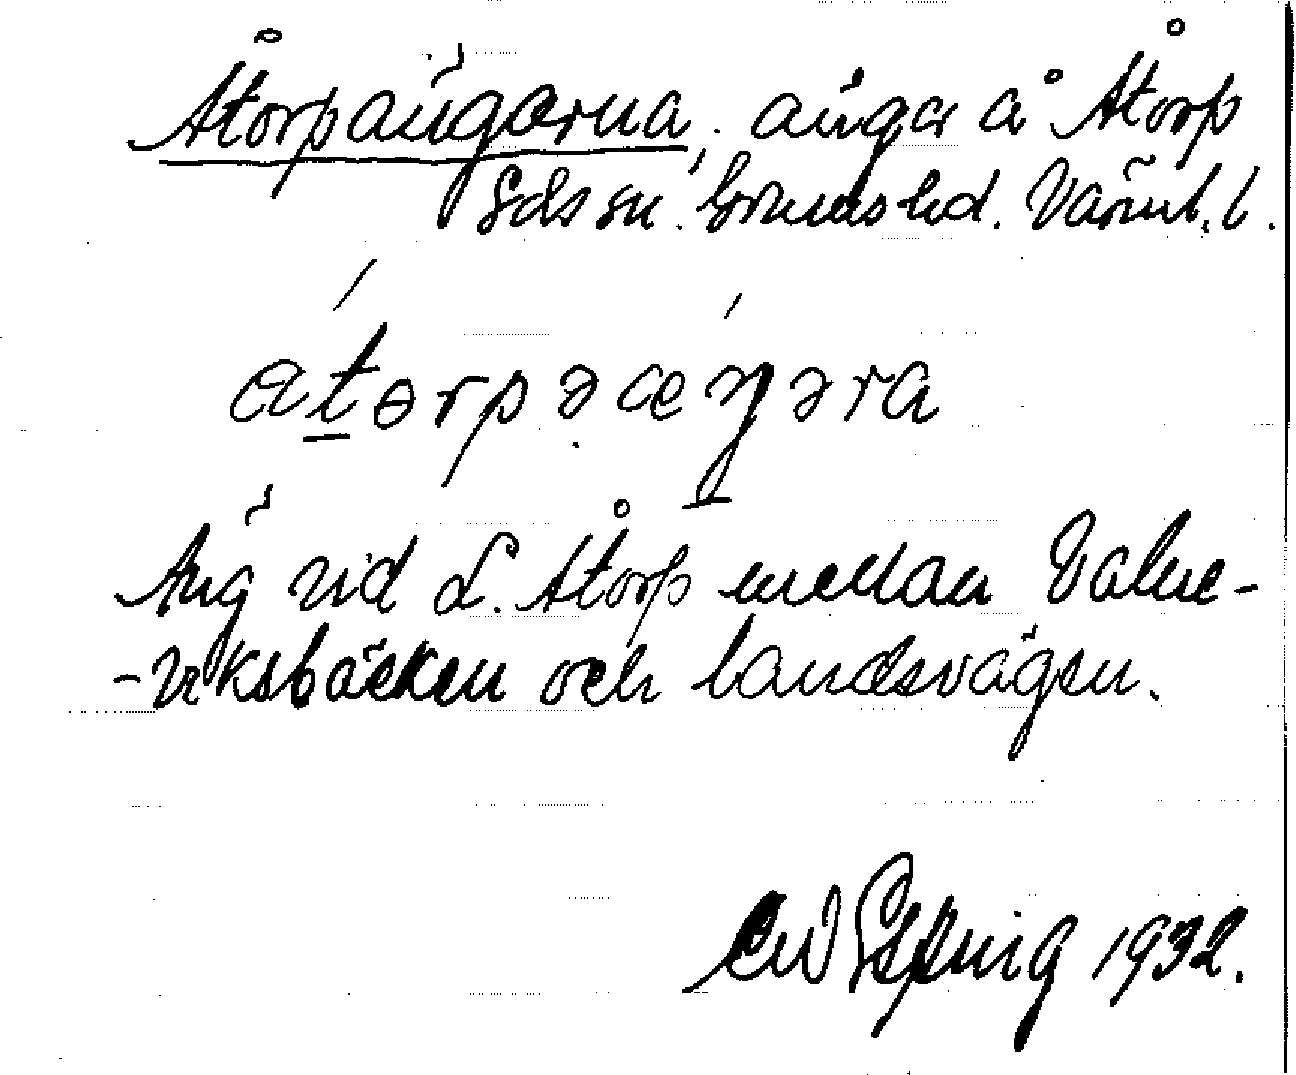 Åtorpängarna, ängar å Åtorp
Eds sn. Grums hd. Värml. l.
åtɵrpəæŋəra
Äng vid L. Åtorp mellan Valne-
-viksbäcken och landsvägen.
1932.